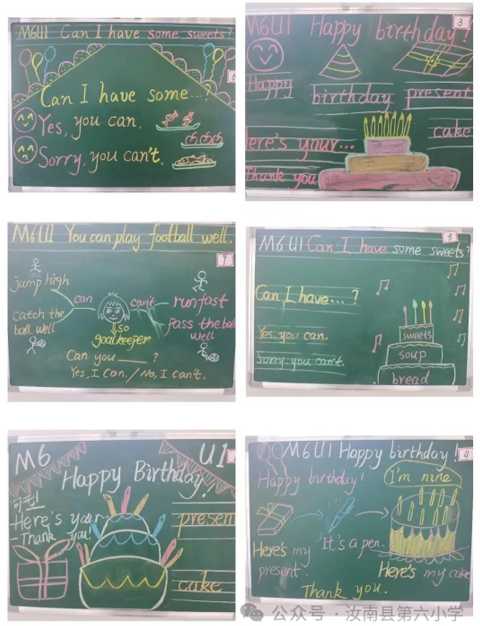 M6U1 Can I have some sweets?
Can I have some...?
Yes, you can.
Sorry, you can't.
M6U1 Happy birthday!
3
Happy birthday present
Here's your... cake
Thank you
M6U1 You can play football well.
jump high
can
can't
run fast
Catch the ball well
Pass the ball well
so
goalkeeper
Can you ____ ?
Yes, I can. / No, I can't.
M6U1 Can I have some sweets?
Can I have...?
Yes, you can.
Sorry, you can't.
sweets
soup
bread
M6 U1
Happy Birthday!
Here's your
-Thank you!
present
cake
M6U1 Happy birthday!
Happy birthday!
I'm nine
Here's my present.
It's a pen.
Here's my cake
Thank you.
公众号 · 汝南县第六小学